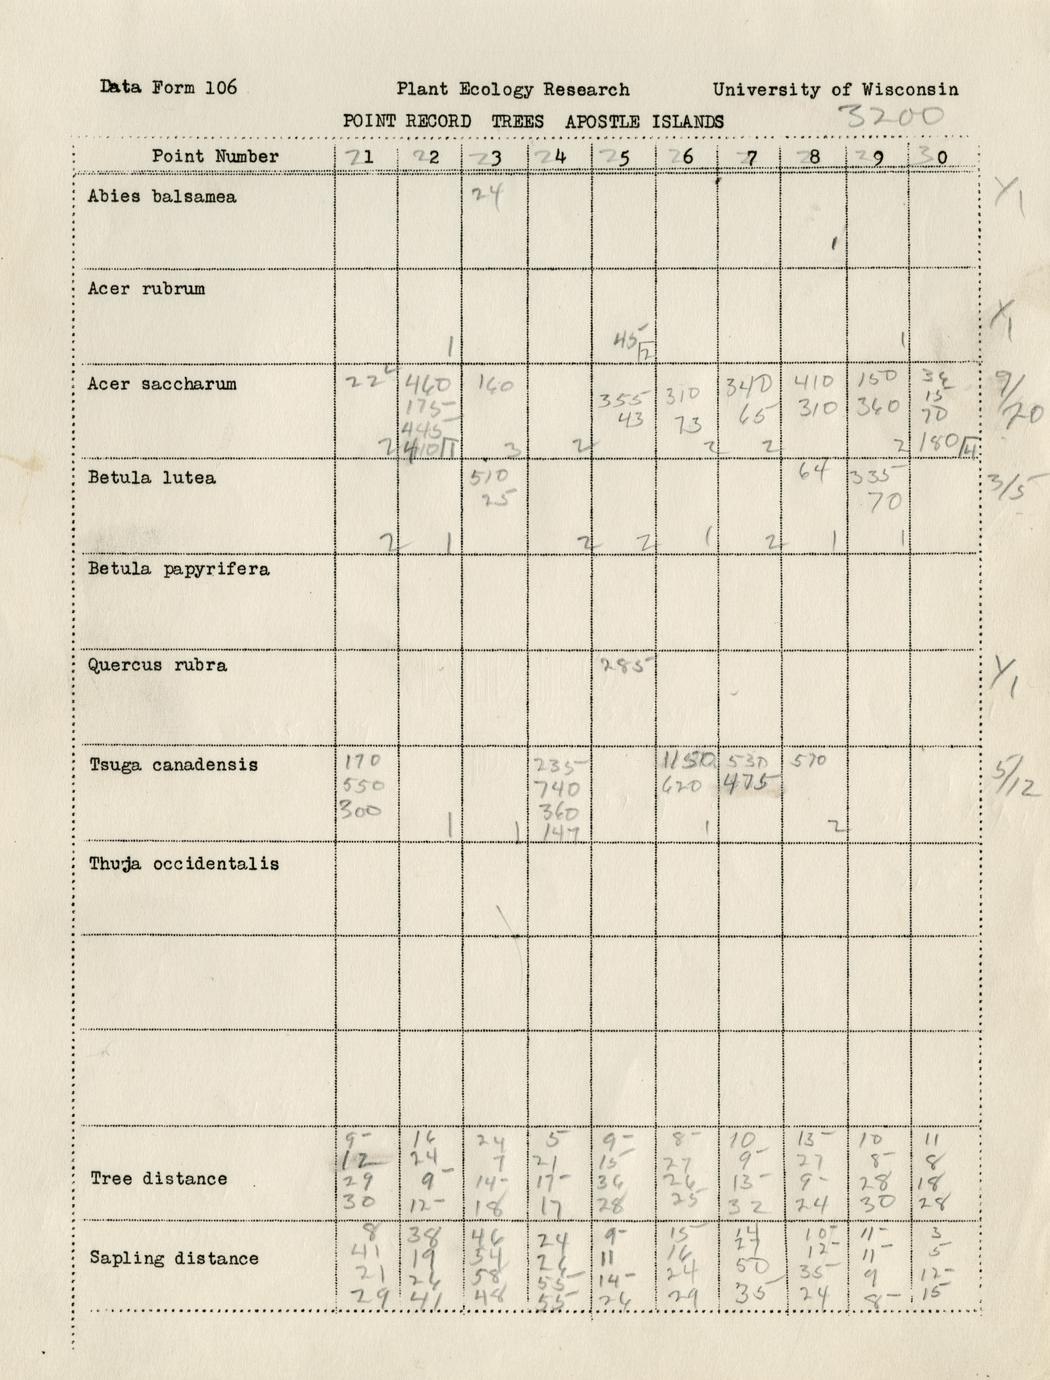 Data Form 106 Plant Ecology Research University of Wisconsin
POINT RECORD TREES APOSTLE ISLANDS 3200
Point Number 21 22 23 24 25 26 27 28 29 30
Abies balsamea 24 1/1
1
Acer rubrum
1/1
1 45 2 1
Acer saccharum 22 460 160 310 340 410 150 9/20
175 355 73 65 310 360 15
445 43 70
2 410 1 3 2 2 2 2 180 4
Betula lutea 510 64 335 3/5
25 70
2 1 2 2 1 2 1 1
Betula papyrifera
Quercus rubra 285 1/1
Tsuga canadensis 170 235 1150 530 570 5/12
550 740 620 475
300 360
1 1 147 1 2
Thuja occidentalis
9 16 24 5 9 8 10 13 10 11
12 24 7 21 15 27 9 27 8 8
Tree distance 29 9 14 17 36 26 13 9 28 18
30 12 18 17 28 25 32 24 30 28
8 38 46 24 9 15 14 10 11 3
Sapling distance 41 19 54 26 11 16 27 12 11 5
21 26 58 55 14 24 50 35 9 12
29 41 48 55 26 29 35 24 8 15